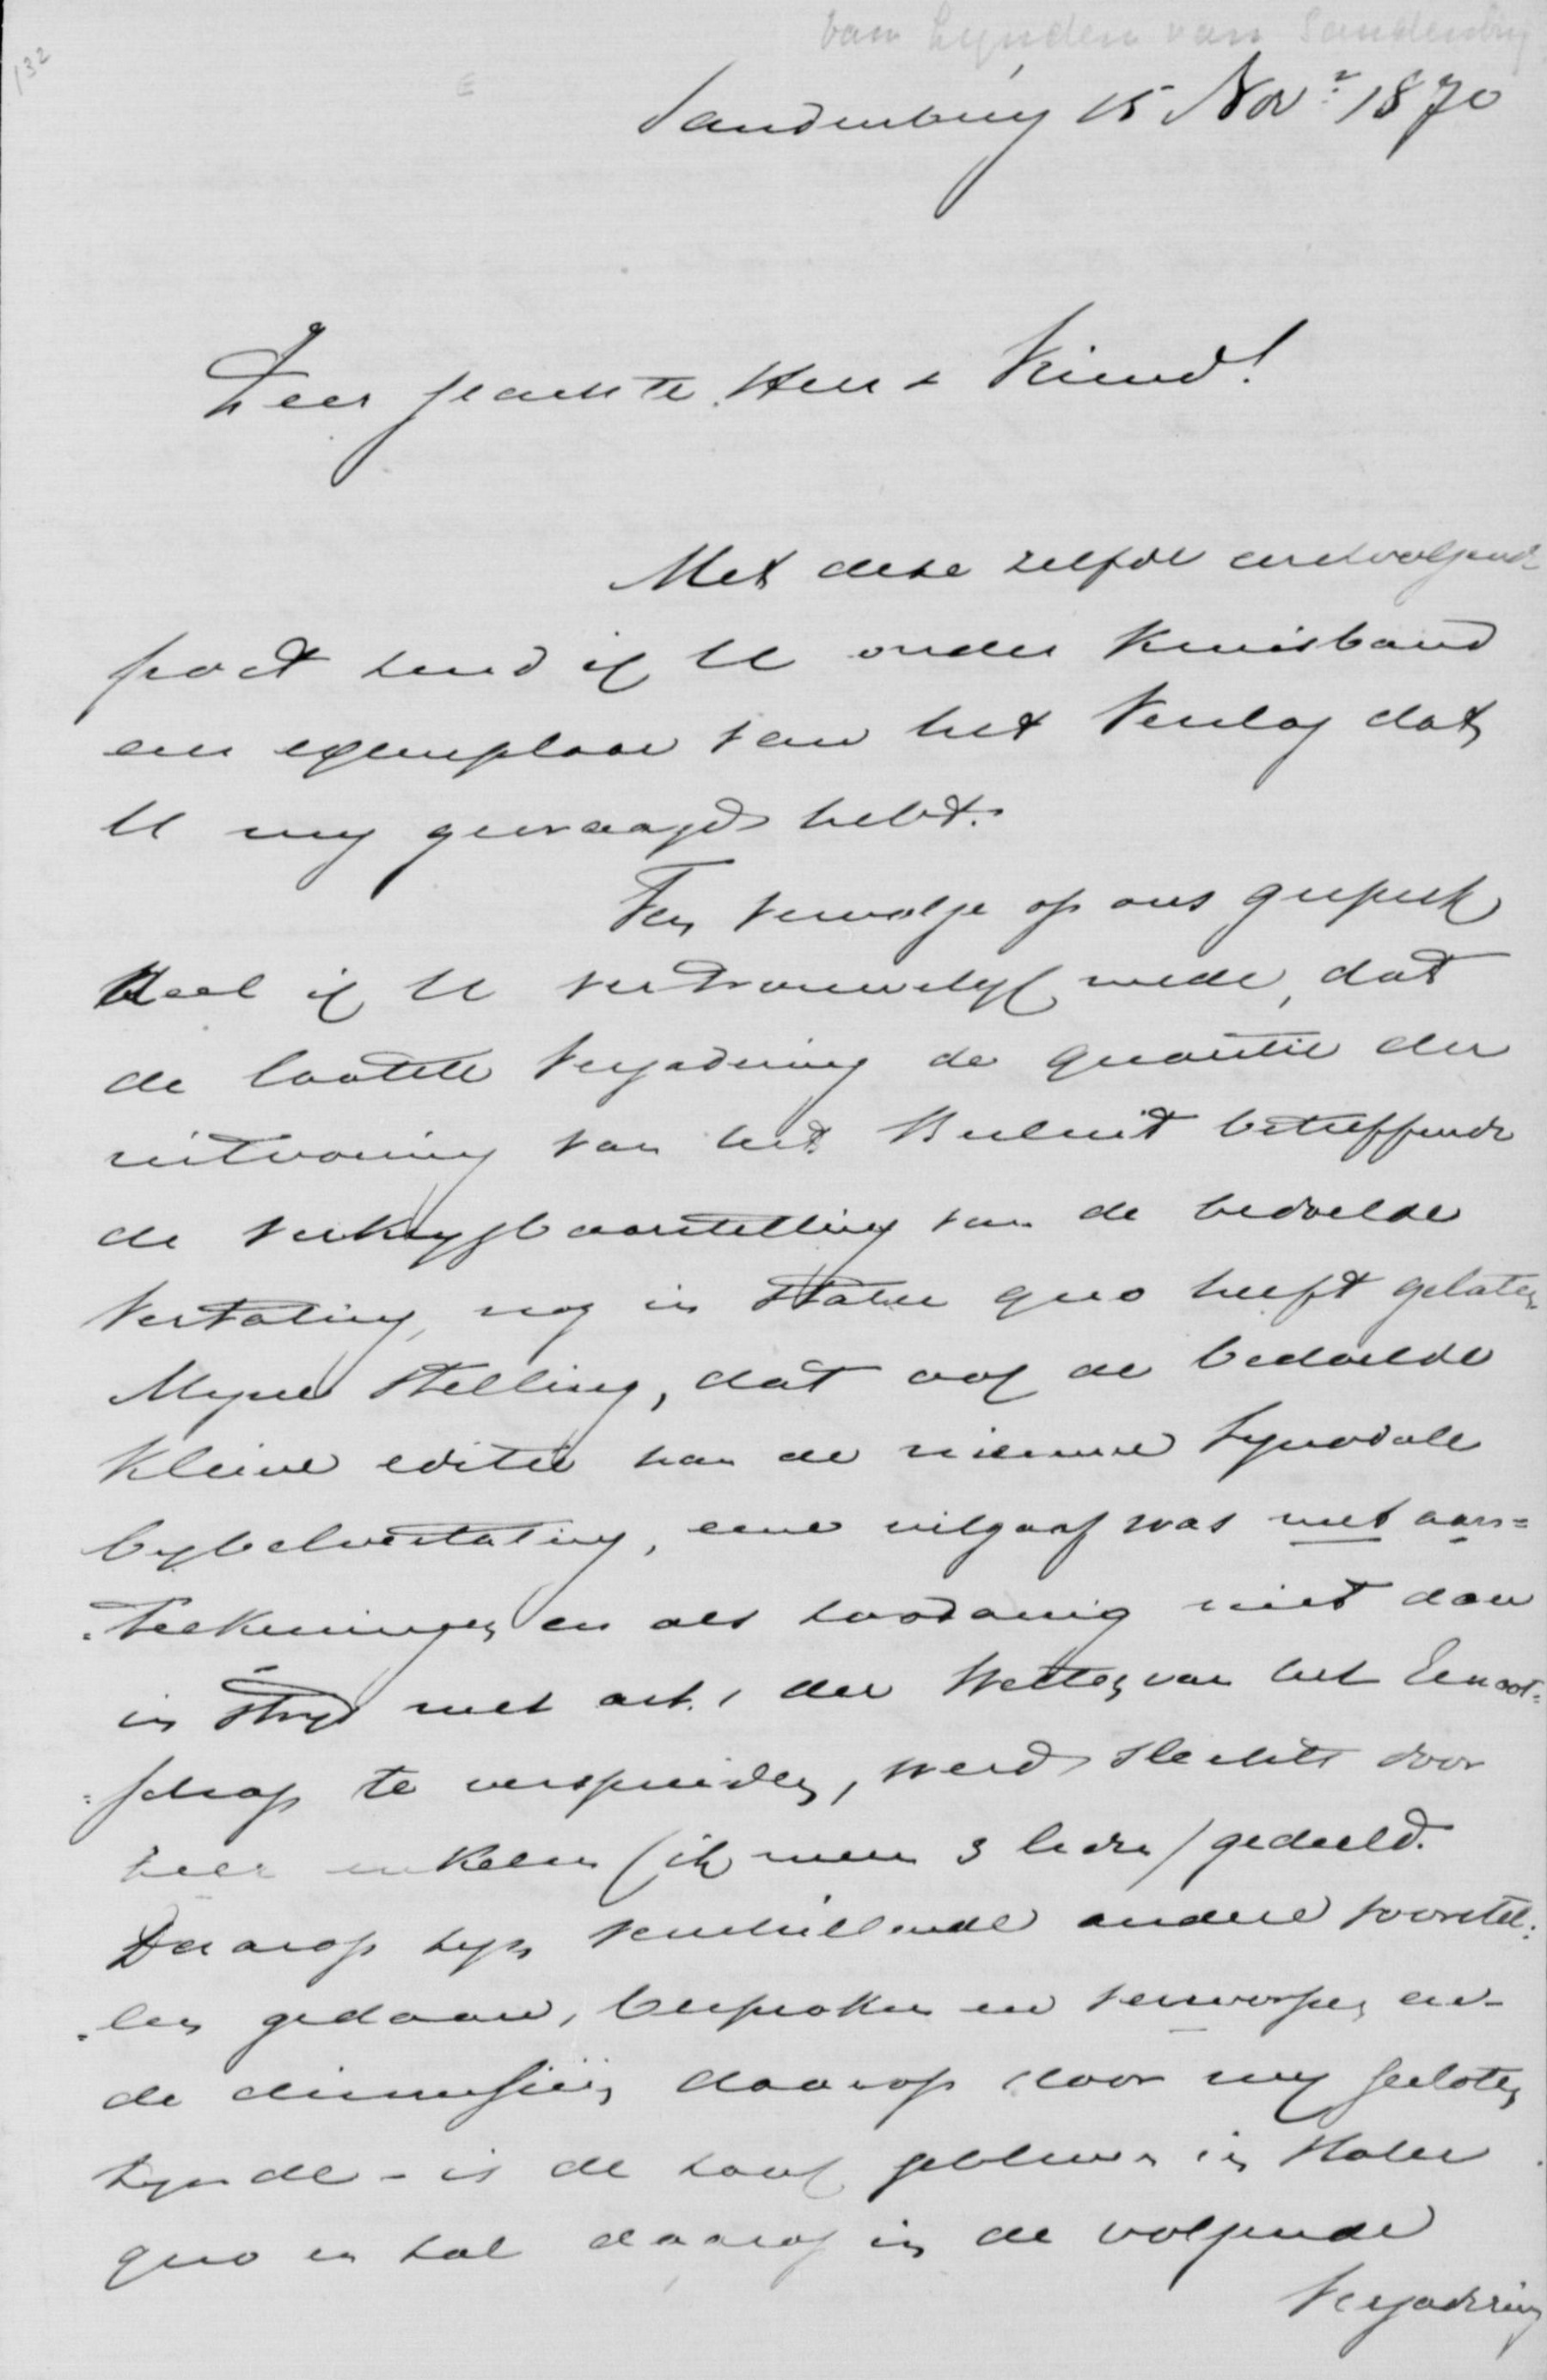 van Lynden van Sandenburg
132
Sandenburg 15 Nov.r 1870
Zeer geachte Heer & Vriend!
Met deze zelfde eerstvolgende
post zend ik U onder Kruisband
een exemplaar van het Verslag dat
U my gevraagd hebt.
Ten vervolge op ons gesprek
deel ik U vertrouwelyk mede, dat
de laatste Vergadering de quaestie der
uitvoering van het Besluit betreffende
de verkrygbaarstelling van de bedoelde
Vertaling, nog in statu quo heeft gelaten
Myne stelling, dat ook de bedoelde
kleine editie van de nieuwe Synodale
bybelvertaling, eene uitgaaf was met aan=
=teekeningen en als zoodanig niet dan
in stryd met art. 1 der Wetten van het Genoot=
=schap te verspreiden, werd slechts door
zeer enkelen (ik meen 3 leden) gedeeld.
Daarop zyn verschillende andere voorstel=
=len gedaan, besproken en verworpen en-
de discussiën daarop door my gesloten
zynde - is de zaak gebleven in statu
quo en zal daarop in de volgende
Vergadering